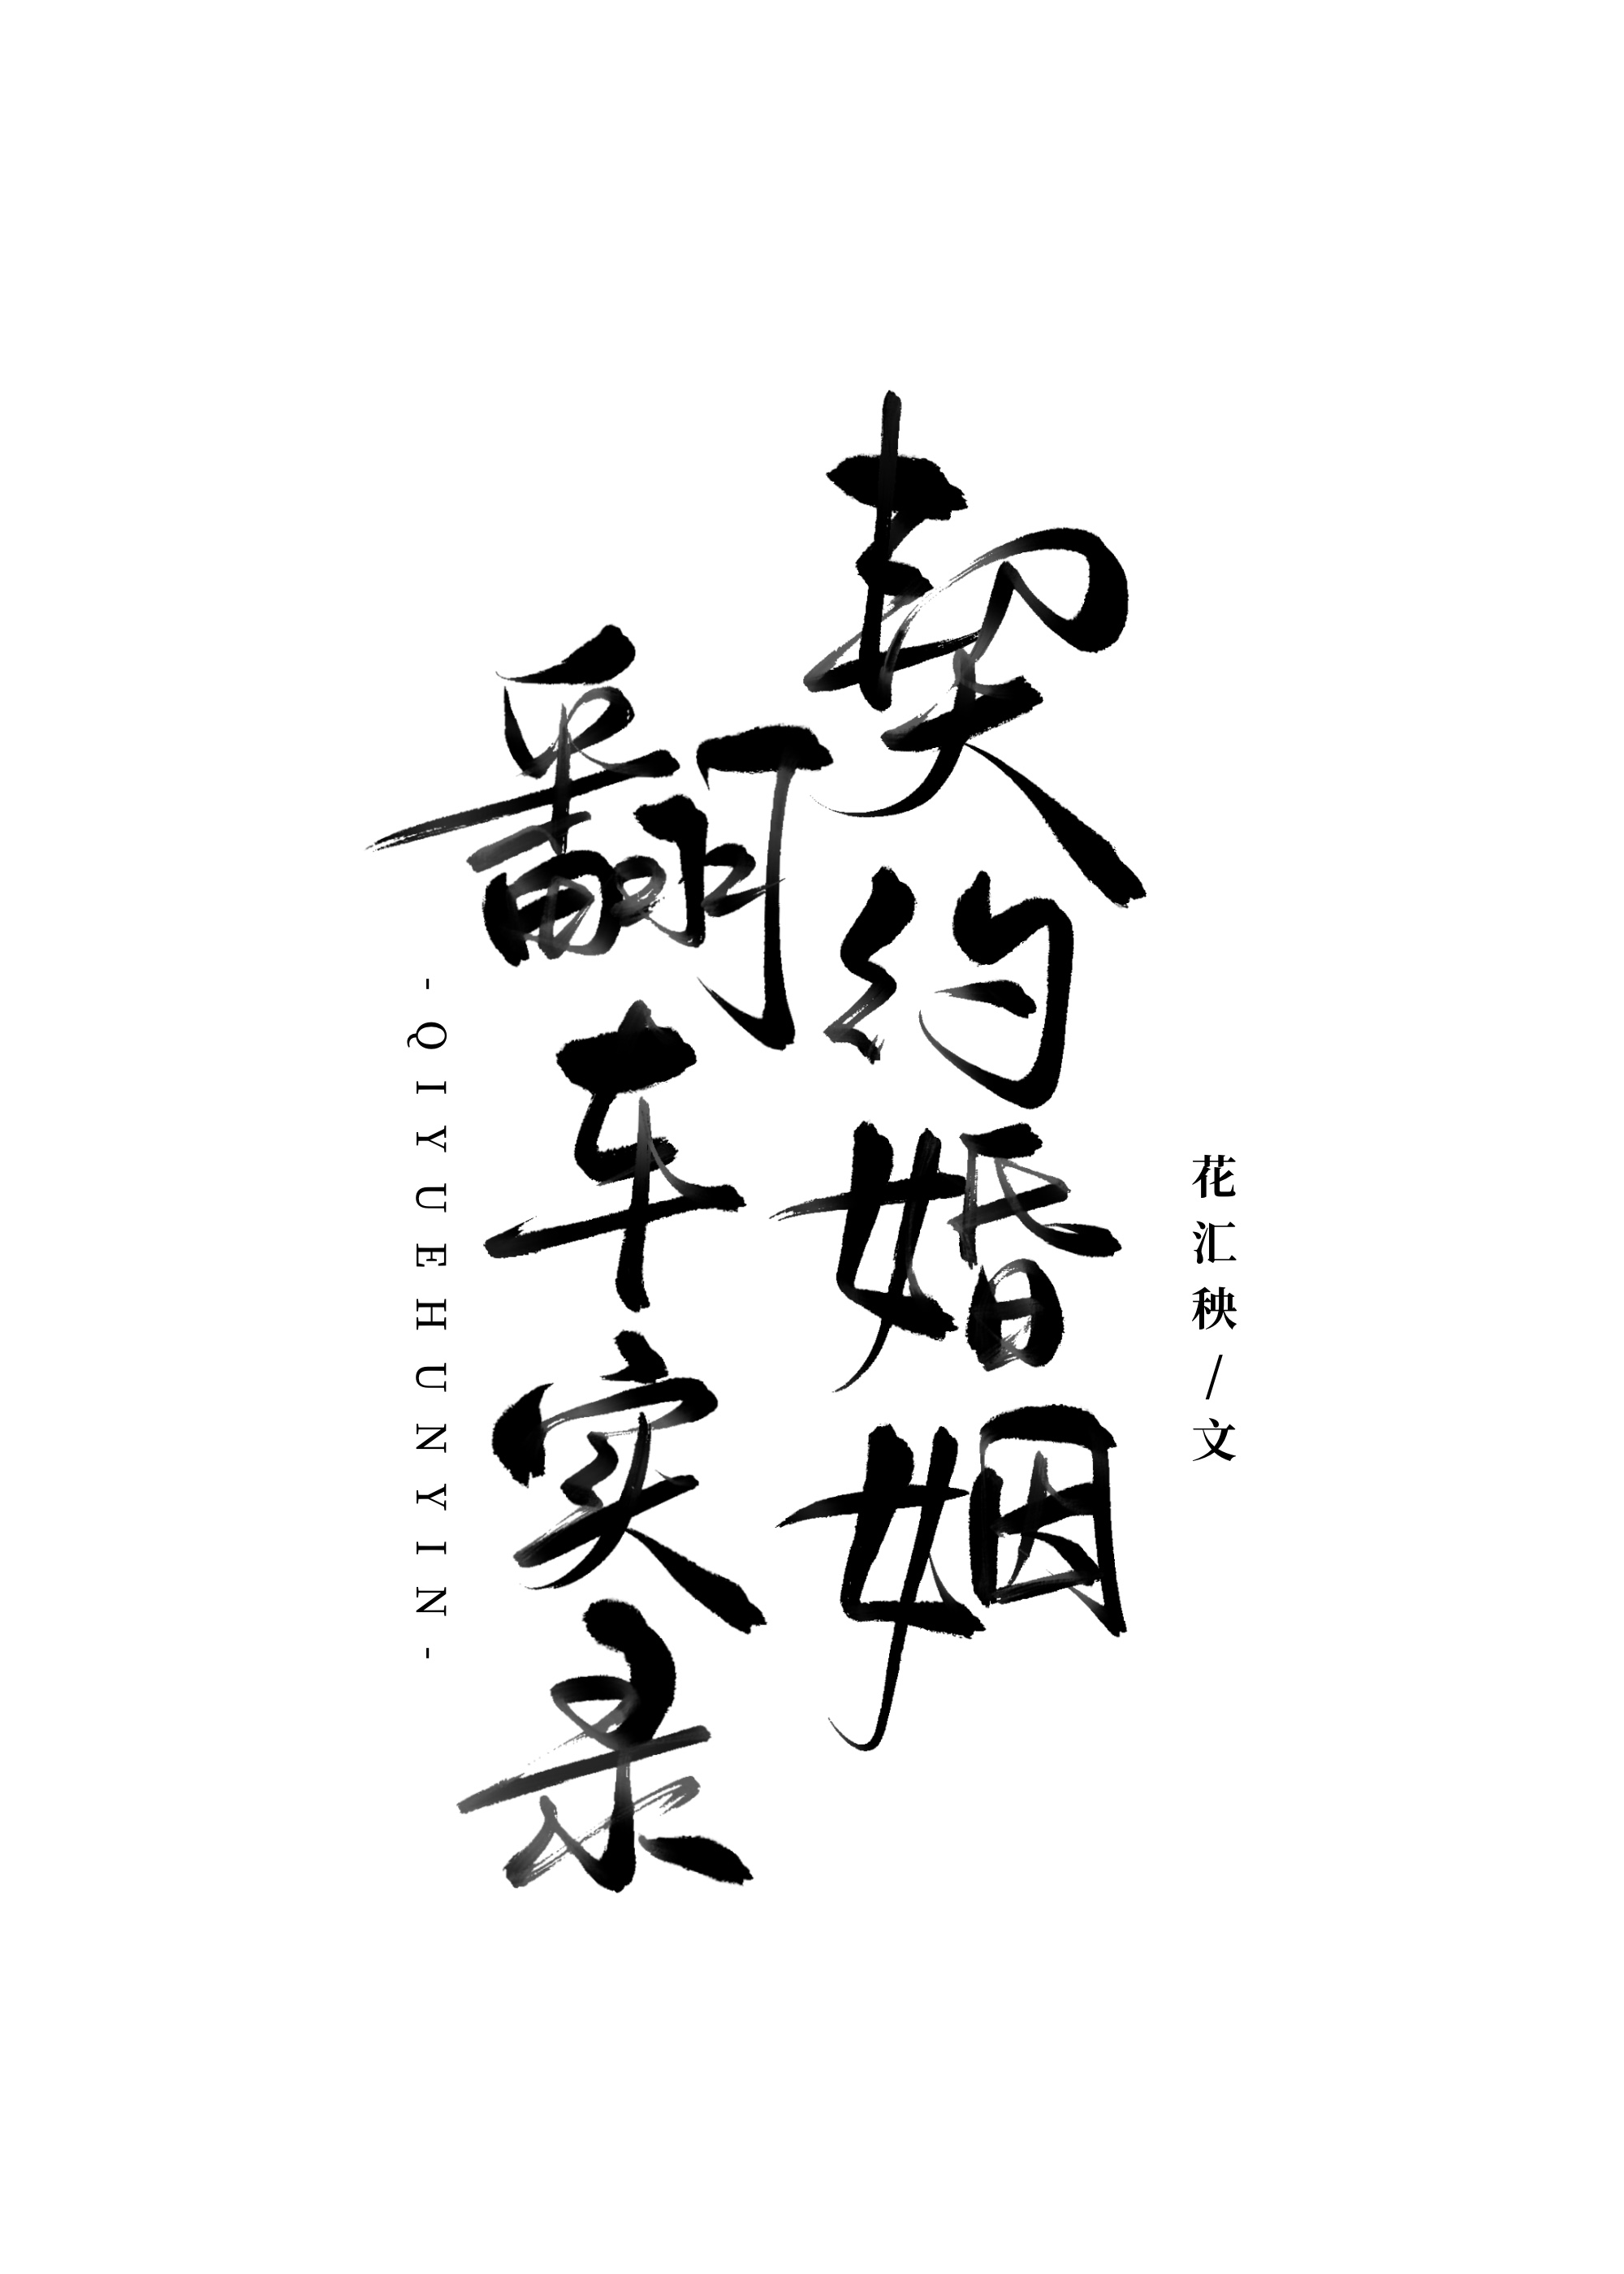 契约婚姻
翻车实录
花汇秧/文
-QIYUEHUNYIN-